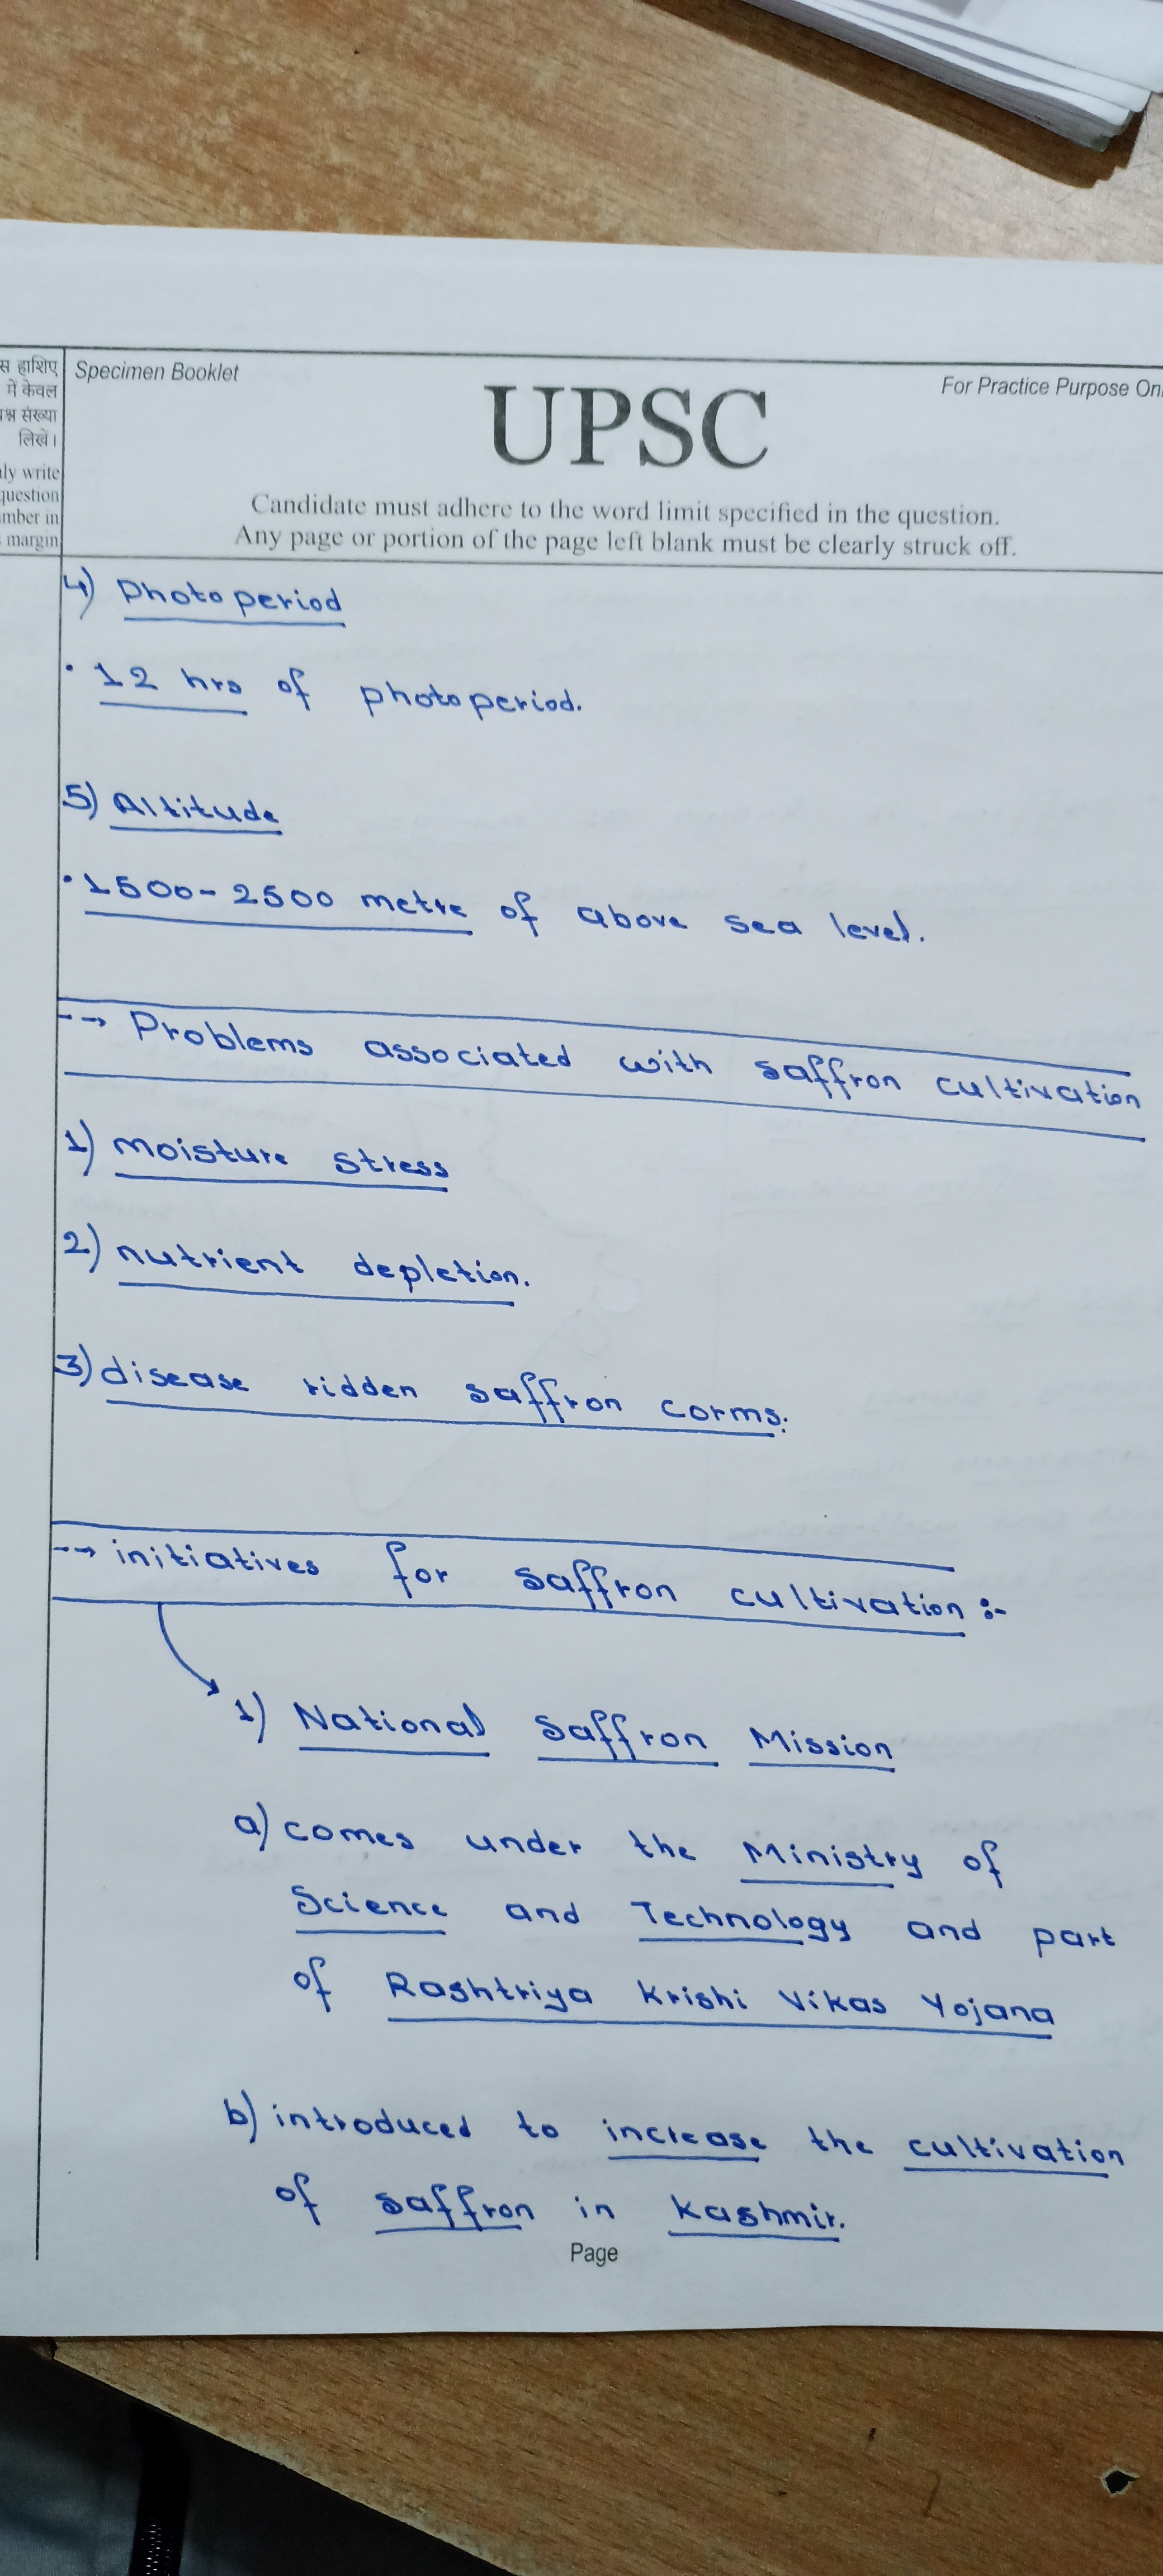 स हाशिए
में केवल
श्न संख्या
लिखें।
ly write
question
mber in
margin
Specimen Booklet
UPSC
For Practice Purpose On
Candidate must adhere to the word limit specified in the question.
Any page or portion of the page left blank must be clearly struck off.
4) Photoperiod
• 12 hrs of photoperiod.
5) Altitude
• 1500-2500 metre of above sea level.
--→ Problems associated with saffron cultivation
1) moisture stress
2) nutrient depletion.
3) disease ridden saffron corms.
--→ initiatives for saffron cultivation :-
1) National Saffron Mission
a) comes under the Ministry of
Science and Technology and part
of Rashtriya Krishi Vikas Yojana
b) introduced to increase the cultivation
of saffron in Kashmir.
Page